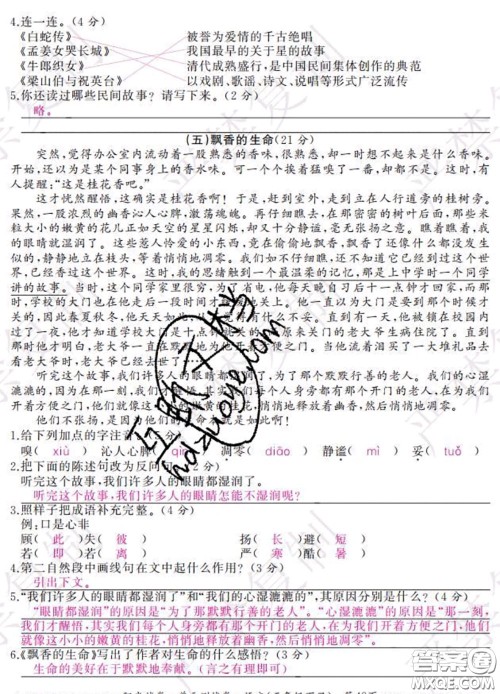 4.连一连。(4 分)
《白蛇传》 被誉为爱情的千古绝唱
《孟姜女哭长城》 我国最早的关于星的故事
《牛郎织女》 清代成熟盛行,是中国民间集体创作的典范
《梁山伯与祝英台》 以戏剧、歌谣、诗文、说唱等形式广泛流传
5.你还读过哪些民间故事? 请写下来。(2 分)
略。
(五)飘香的生命(21 分)
突然,觉得办公室内流动着一股熟悉的香味,很熟悉,却一时想不起来是什么香味。
开始,还以为是某个同事身上的香水味。可一个个挨着猛嗅了一番,却都不是。这时,有
人提醒:“这是桂花香吧。”
这才恍然醒悟,这确实是桂花香! 于是,赶到室外,走到立在人行道旁的桂树旁。
果然,一股浓烈的幽香沁人心脾,激荡魂魄。再仔细瞧去,在那密密的树叶后面,那些米
粒大小的嫩黄的花儿正如天空的星星闪烁,却又十分静谧,毫无张扬之意。瞧着瞧着,我
的眼睛就湿润了。这些惹人怜爱的小东西,竟在偷偷地飘香,飘香了还像什么都没发生
似的,静静地立在枝头,等着悄悄地凋零。我们如不仔细瞧,还不知道它已经到过这个世
界、已经香过这个世界。这时,我的思绪触到一个最温柔的记忆,那是上中学时一个同学
讲的故事。当时,这个同学家里很穷,为了省电,他每天晚自习后十一点钟才回家,而那
时,学校的大门也在他走后一段时间才缓缓关上。他一直以为大门是要到那个时候才
关的,因此春夏秋冬,他天天
有什么不妥。直到有一天,他被锁在校园内
过了一夜,他才知道学校大门是十点钟就
原来关门的老大爷生病住院了。直到
那时他才明白,老大爷一直在默默地为他
当他流着泪买了一大堆礼品去
看老大爷时,老大爷已经去世了
听完这个故事,我们许多人的眼睛都湿润了,为了那个默默行善的老人。我们的心湿
漉漉的,因为那一刻,我们才醒悟,其实我们每个人身旁都有那个开门的老人,在为我们
开着方便之门,他们就像这小小的嫩黄的桂花,悄悄地释放着幽香,然后悄悄地凋零。
他们不张扬,是因为他们的
就是如此!
1.给下列加点的字注音。
嗅( xiù ) 沁人心脾( qìn ) 凋零( diāo ) 静谧( mì ) 妥( tuǒ )
2.把下面的陈述句改为反问句。(2 分)
听完这个故事,我们许多人的眼睛都湿润了。
听完这个故事,我们许多人的眼睛怎能不湿润呢?
3.照样子把成语补充完整。(4 分)
例:口是心非
顾( 此 )失( 彼 ) 扬( 长 )避( 短 )
若( 即 )若( 离 ) 严( 寒 )酷( 暑 )
4.第二自然段中画线句在文中起什么作用? (2 分)
引出下文。
5.“我们许多人的眼睛都湿润了”和“我们的心湿漉漉的”,其原因分别是什么? (4 分)
“眼睛都湿润”的原因是“为了那默默行善的老人”。“心湿漉漉的”原因是“那一刻,
我们才醒悟,其实我们每个人身旁都有那个开门的老人,在为我们开着方便之门,他们
就像这小小的嫩黄的桂花,悄悄地释放着幽香,然后悄悄地凋零。”
6.《飘香的生命》写出了作者对生命的什么感悟? (3 分)
生命的美好在于默默地奉献。(言之有理即可)